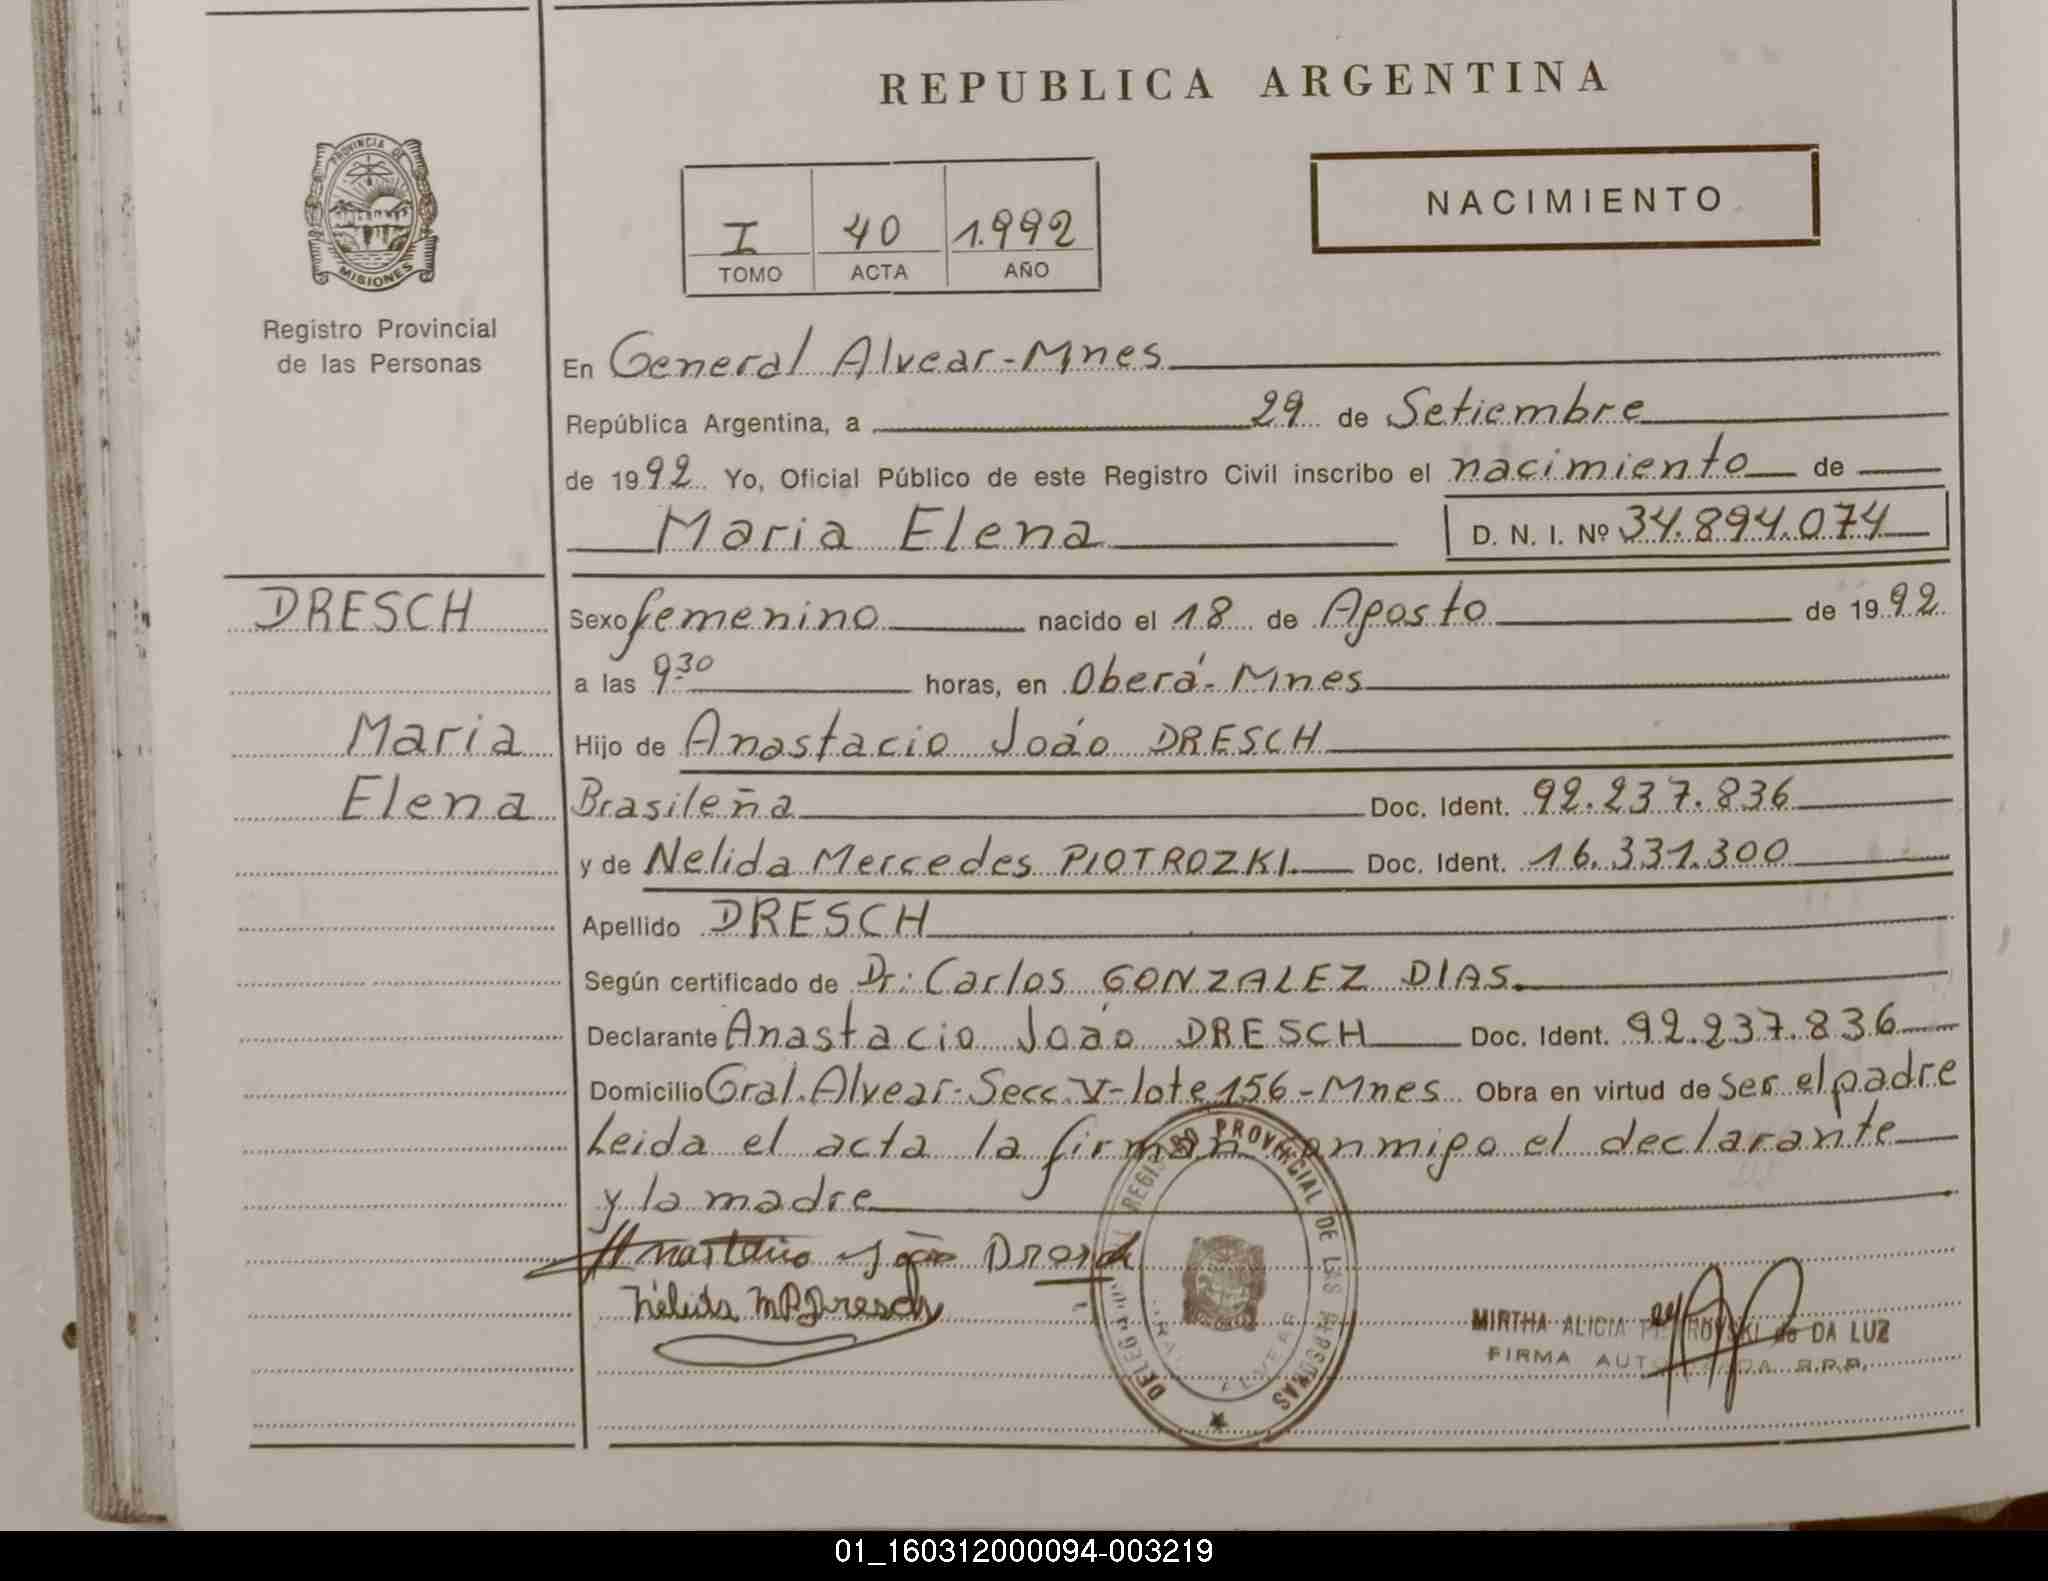 REPUBLICA ARGENTINA
PROVINCIA DE
MISIONES
Registro Provincial
de las Personas
I 40 1.992
TOMO ACTA AÑO
NACIMIENTO
En General Alvear-Mnes
República Argentina, a 29 de Setiembre
de 1992 Yo, Oficial Público de este Registro Civil inscribo el nacimiento de
Maria Elena D. N. I. Nº 34.894.074
DRESCH
Maria
Elena
Sexo femenino nacido el 18 de Agosto de 1992
a las 9.30 horas, en Oberá-Mnes
Hijo de Anastacio Joáo DRESCH
Brasileña Doc. Ident. 92.237.836
y de Nelida Mercedes PIOTROZKI. Doc. Ident. 16.331.300
Apellido DRESCH
Según certificado de Dr: Carlos GONZALEZ DIAS.
Declarante Anastacio Joáo DRESCH Doc. Ident. 92.237.836
Domicilio Gral. Alvear-Secc. V-lote 156-Mnes Obra en virtud de ser el padre
Leida el acta la firman conmigo el declarante
y la madre
Anastacio João Dresch
Nélida M P Dresch
REGISTRO PROVINCIAL DE LAS PERSONAS
ALVEAR
MIRTHA ALICIA DA LUZ
FIRMA AUTORIZADA R.P.P.
01_160312000094-003219